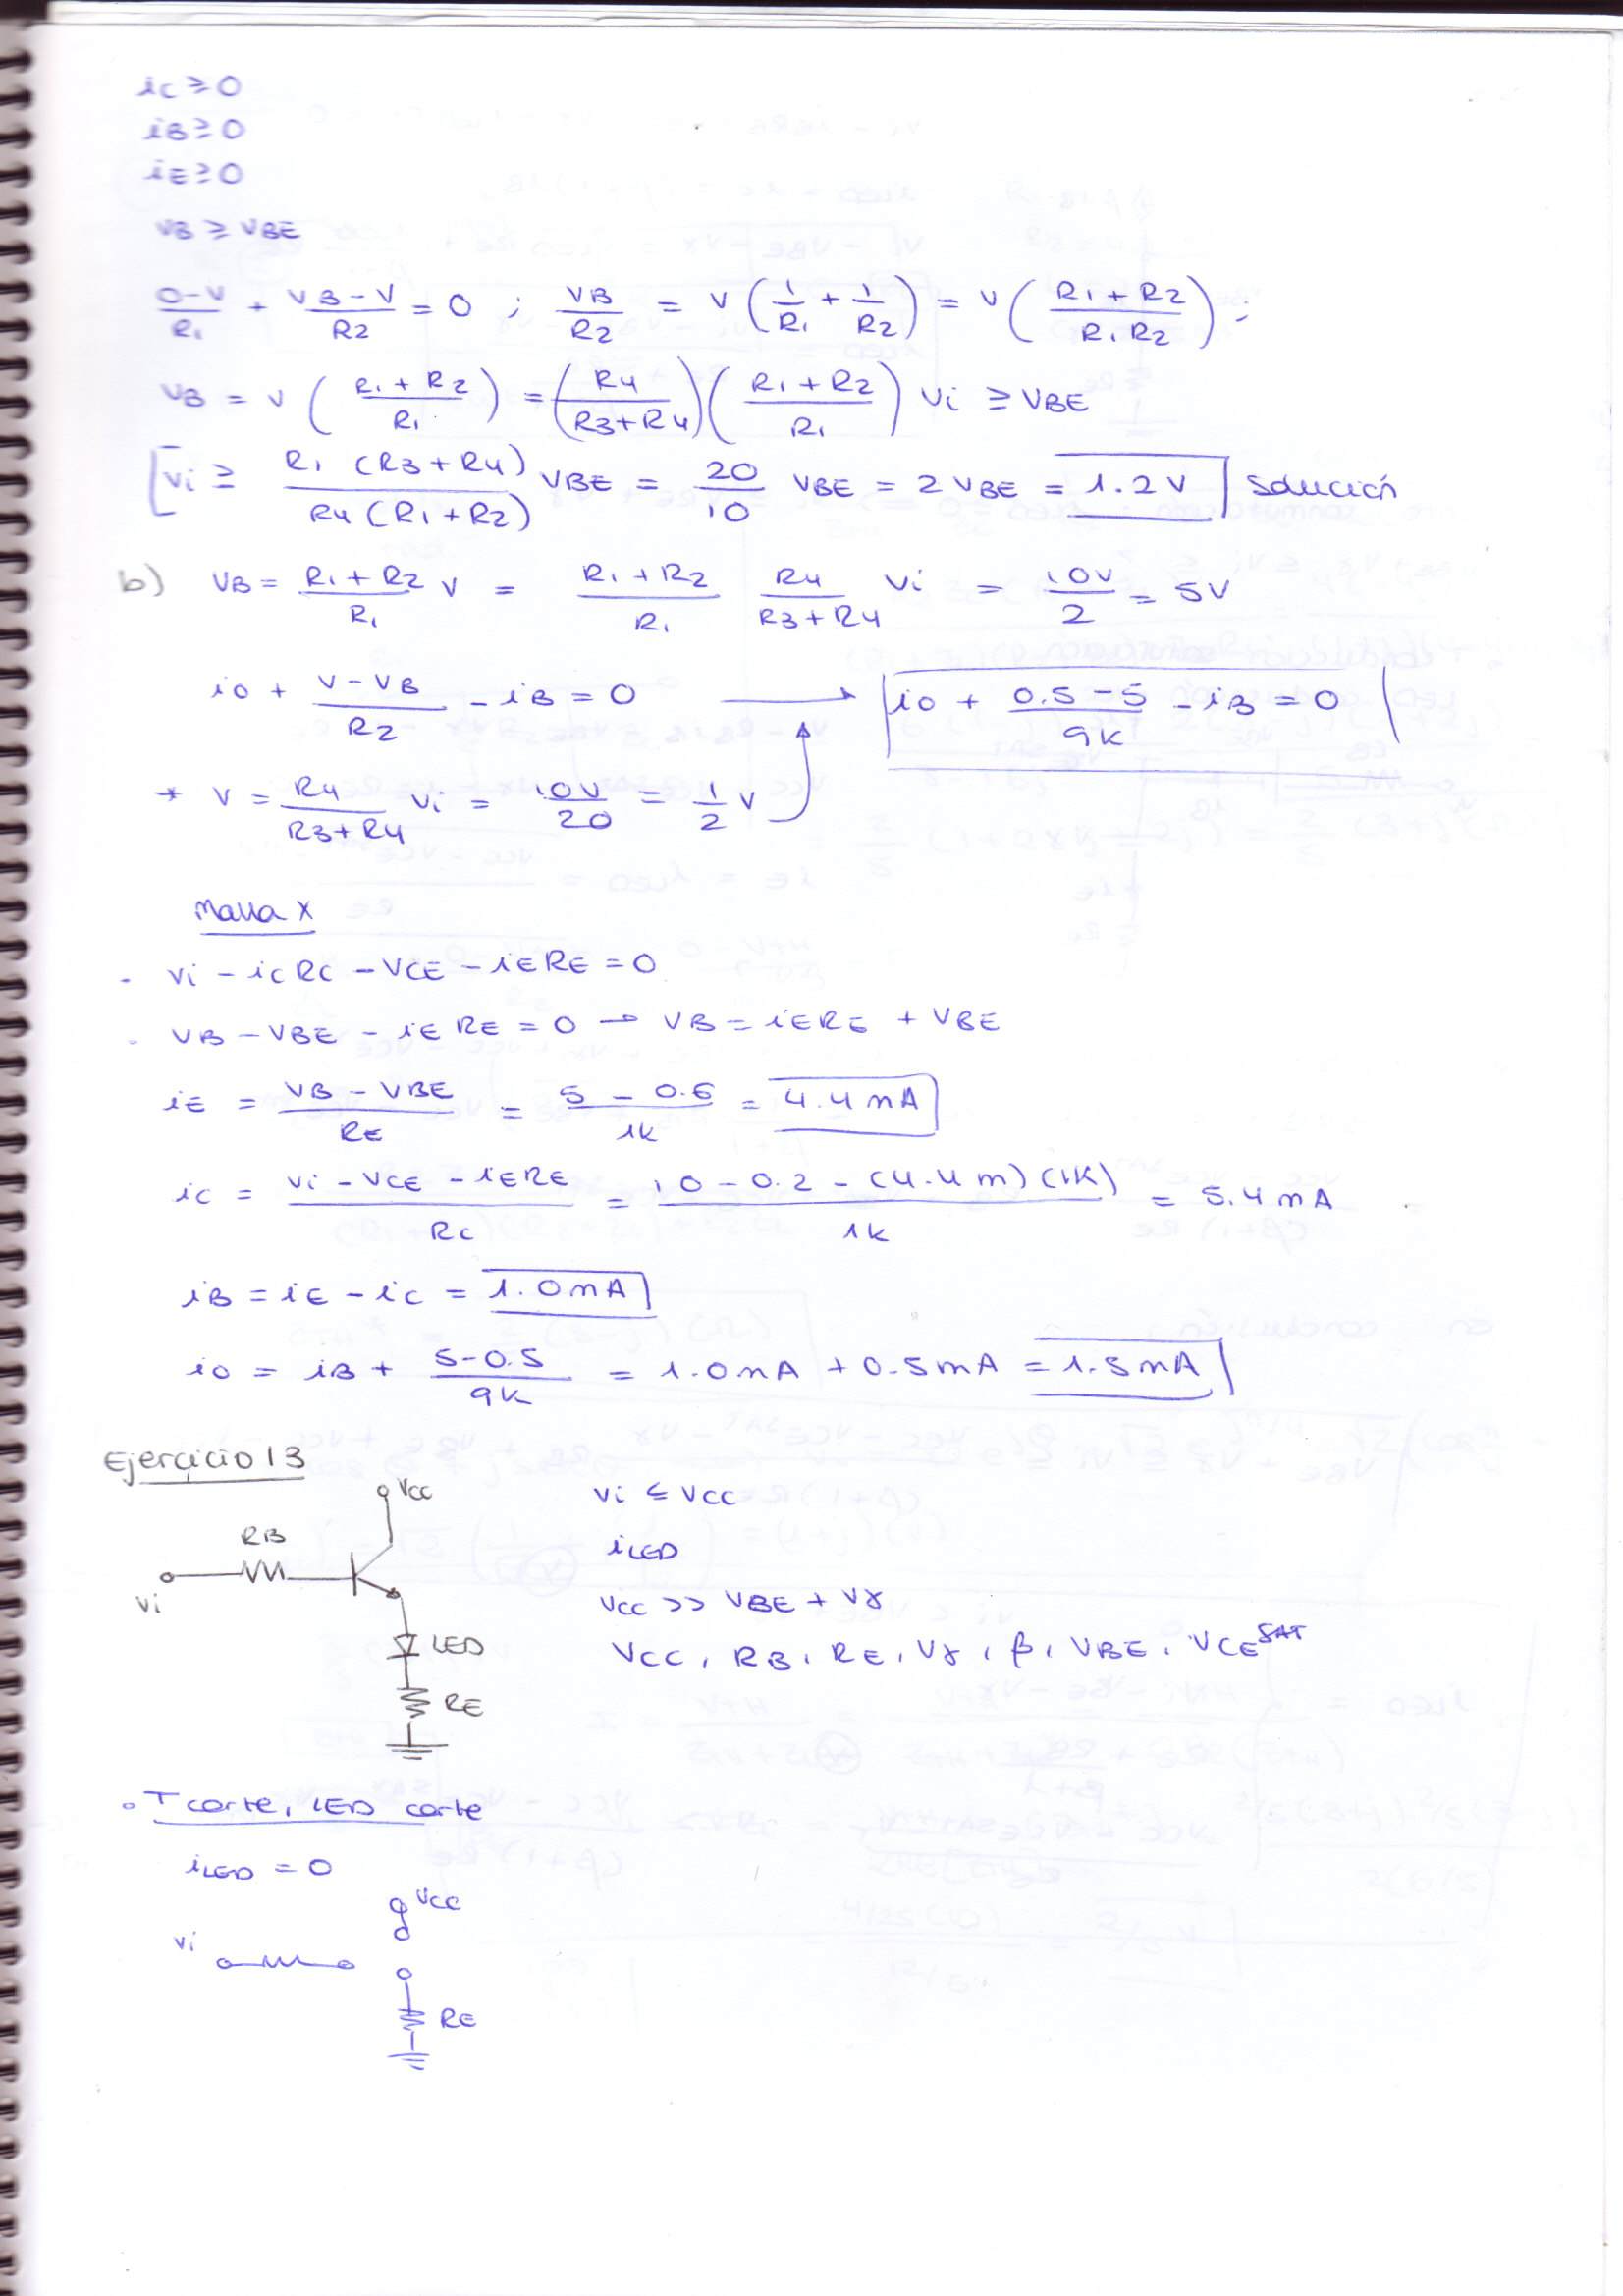 ic ≥ 0
iB ≥ 0
iE ≥ 0
VB ≥ VBE
(0-V)/R1 + (VB-V)/R2 = 0 ; VB/R2 = V (1/R1 + 1/R2) = V ((R1+R2)/(R1R2)) ;
VB = V ((R1+R2)/R1) = (R4/(R3+R4)) ((R1+R2)/R1) Vi ≥ VBE
Vi ≥ (R1 (R3+R4))/(R4 (R1+R2)) VBE = 20/10 VBE = 2 VBE = 1.2 V Solución
b) VB = (R1+R2)/R1 V = (R1+R2)/R1 R4/(R3+R4) Vi = 10V/2 = 5V
io + (V-VB)/R2 - iB = 0 → io + (0.5-5)/9k - iB = 0
* V = R4/(R3+R4) Vi = 10V/20 = 1/2 V
Malla X
- Vi - icRc - VCE - iERE = 0
- VB - VBE - iERE = 0 → VB = iERE + VBE
iE = (VB-VBE)/RE = (5-0.6)/1k = 4.4 mA
ic = (Vi - VCE - iERE)/Rc = (10 - 0.2 - (4.4m)(1k))/1k = 5.4 mA
iB = iE - ic = 1.0 mA
io = iB + (5-0.5)/9k = 1.0 mA + 0.5 mA = 1.5 mA
Ejercicio 13
Vcc
RB
Vi
LED
RE
Vi ≤ Vcc
iLED
Vcc >> VBE + Vγ
Vcc, RB, RE, Vγ, β, VBE, VCE^SAT
• T corte, LED corte
iLED = 0
Vcc
Vi
RE